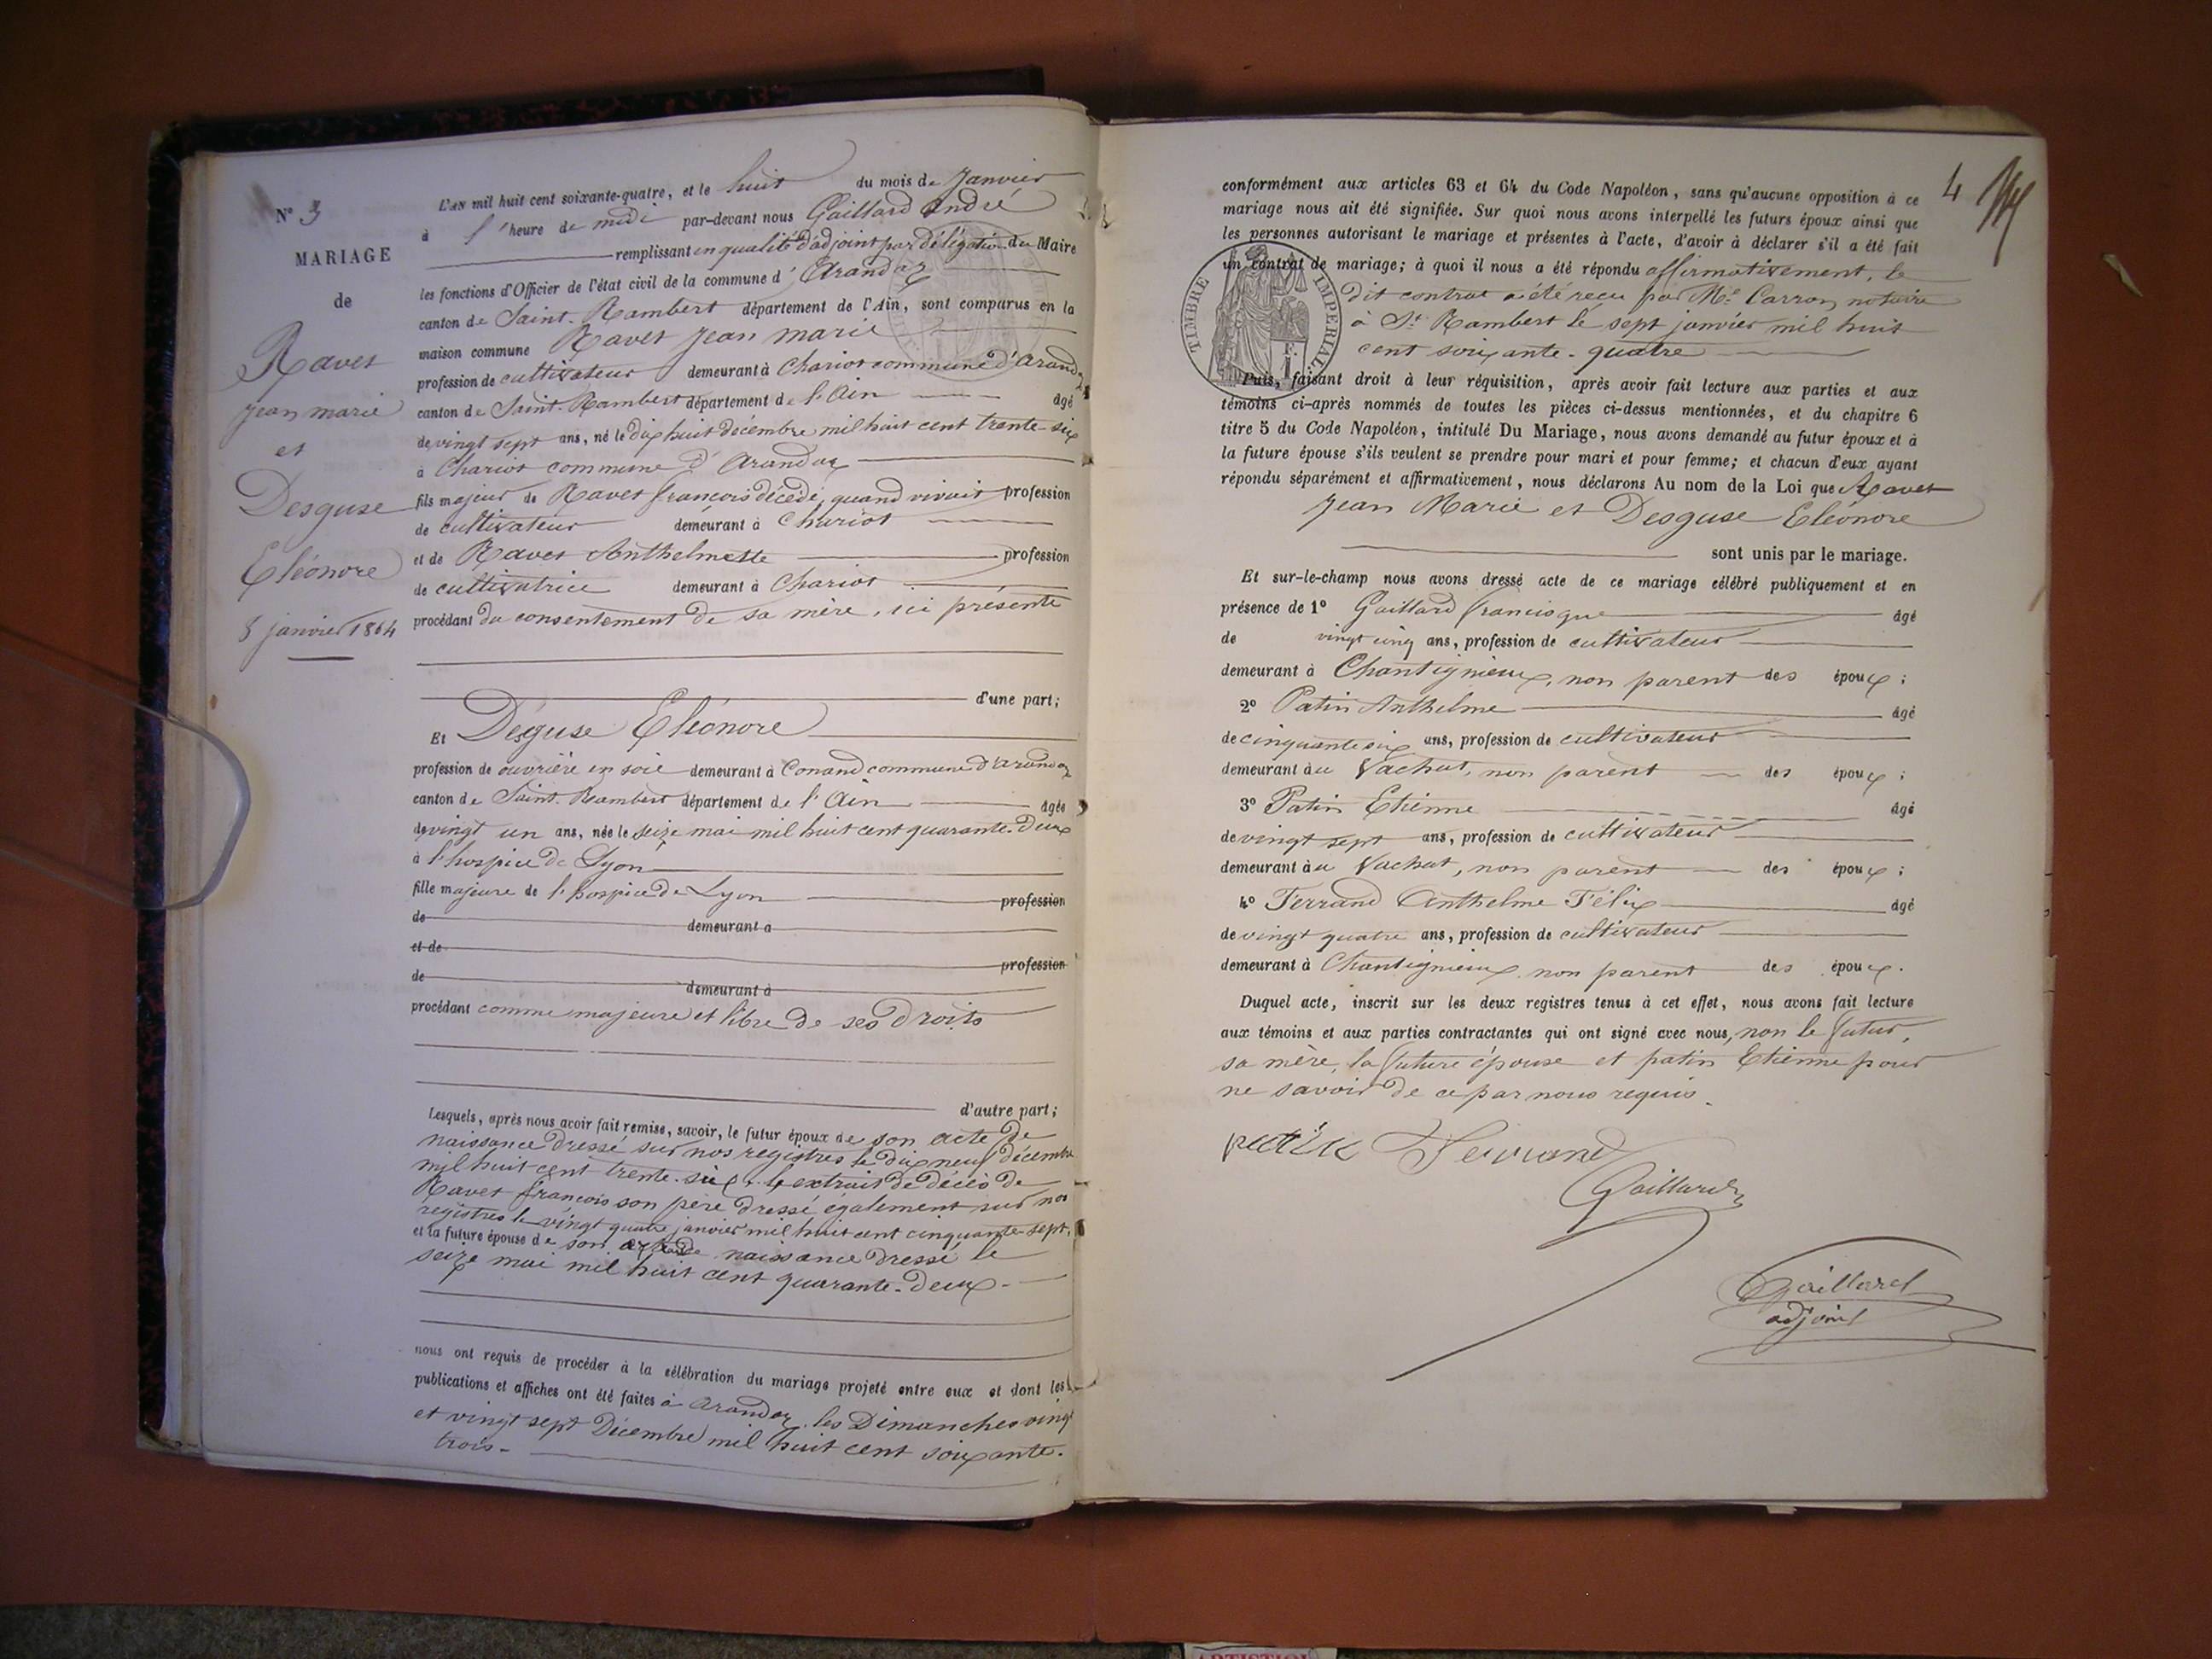 N° 3
MARIAGE
de
Ravet
jean marie
et
Desguse
Eléonore
8 janvier 1864
L'AN mil huit cent soixante-quatre, et le huit du mois de Janvier
à l'heure de midi par-devant nous Gaillard André
remplissant en qualité d'adjoint par délégation du Maire
les fonctions d'Officier de l'état civil de la commune d'Arandaz
canton de Saint-Rambert département de l'Ain, sont comparus en la
maison commune Ravet jean marie
profession de cultivateur demeurant à Chariot commune d'Arandaz
canton de Saint-Rambert département de l'Ain âgé
de vingt sept ans, né le dix huit décembre mil huit cent trente-six
à Chariot commune d'Arandaz
fils majeur de Ravet françois décédé, quand vivait profession
de cultivateur demeurant à Chariot
et de Ravet Anthelmette profession
de cultivatrice demeurant à Chariot
procédant du consentement de sa mère, ici présente
d'une part;
Et Desguse Eléonore
profession de ouvrière en soie demeurant à Conand commune d'Arandaz
canton de Saint-Rambert département de l'Ain âgée
de vingt un ans, née le seize mai mil huit cent quarante-deux
à l'hospice de Lyon
fille majeure de l'hospice de Lyon profession
de demeurant à
et de profession
de demeurant à
procédant comme majeure et libre de ses droits
d'autre part;
Lesquels, après nous avoir fait remise, savoir, le futur époux de son acte de
naissance dressé sur nos registres le dix neuf décembre
mil huit cent trente-six, le extrait de décès de
Ravet françois son père dressé également sur nos
registres le vingt quatre janvier mil huit cent cinquante-sept,
et la future épouse de son acte de naissance dressé le
seize mai mil huit cent quarante-deux-
nous ont requis de procéder à la célébration du mariage projeté entre eux et dont les
publications et affiches ont été faites à Arandaz les Dimanches vingt
et vingt sept Décembre mil huit cent soixante-
trois-
4
conformément aux articles 63 et 64 du Code Napoléon, sans qu'aucune opposition à ce
mariage nous ait été signifiée. Sur quoi nous avons interpellé les futurs époux ainsi que
les personnes autorisant le mariage et présentes à l'acte, d'avoir à déclarer s'il a été fait
un contrat de mariage; à quoi il nous a été répondu affirmativement, le
dit contrat a été reçu par Me Carron, notaire
à St Rambert le sept janvier mil huit
cent soixante-quatre
TIMBRE IMPERIAL
1 F.
Puis, faisant droit à leur réquisition, après avoir fait lecture aux parties et aux
témoins ci-après nommés de toutes les pièces ci-dessus mentionnées, et du chapitre 6
titre 5 du Code Napoléon, intitulé Du Mariage, nous avons demandé au futur époux et à
la future épouse s'ils veulent se prendre pour mari et pour femme; et chacun d'eux ayant
répondu séparément et affirmativement, nous déclarons Au nom de la Loi que Ravet
Jean Marie et Desguse Eléonore
sont unis par le mariage.
Et sur-le-champ nous avons dressé acte de ce mariage célébré publiquement et en
présence de 1° Gaillard francisque âgé
de vingt cinq ans, profession de cultivateur
demeurant à Chantignieux, non parent des époux;
2° Patin Anthelme âgé
de cinquante six ans, profession de cultivateur
demeurant au Vachat, non parent des époux;
3° Patin Etienne âgé
de vingt sept ans, profession de cultivateur
demeurant au Vachat, non parent des époux;
4° Ferrand Anthelme Félix âgé
de vingt quatre ans, profession de cultivateur
demeurant à Chantignieux non parent des époux.
Duquel acte, inscrit sur les deux registres tenus à cet effet, nous avons fait lecture
aux témoins et aux parties contractantes qui ont signé avec nous, non le futur,
sa mère, la future épouse et patin Etienne pour
ne savoir de ce par nous requis.
patin Ferrand
Gaillard
Gaillard
adjoint